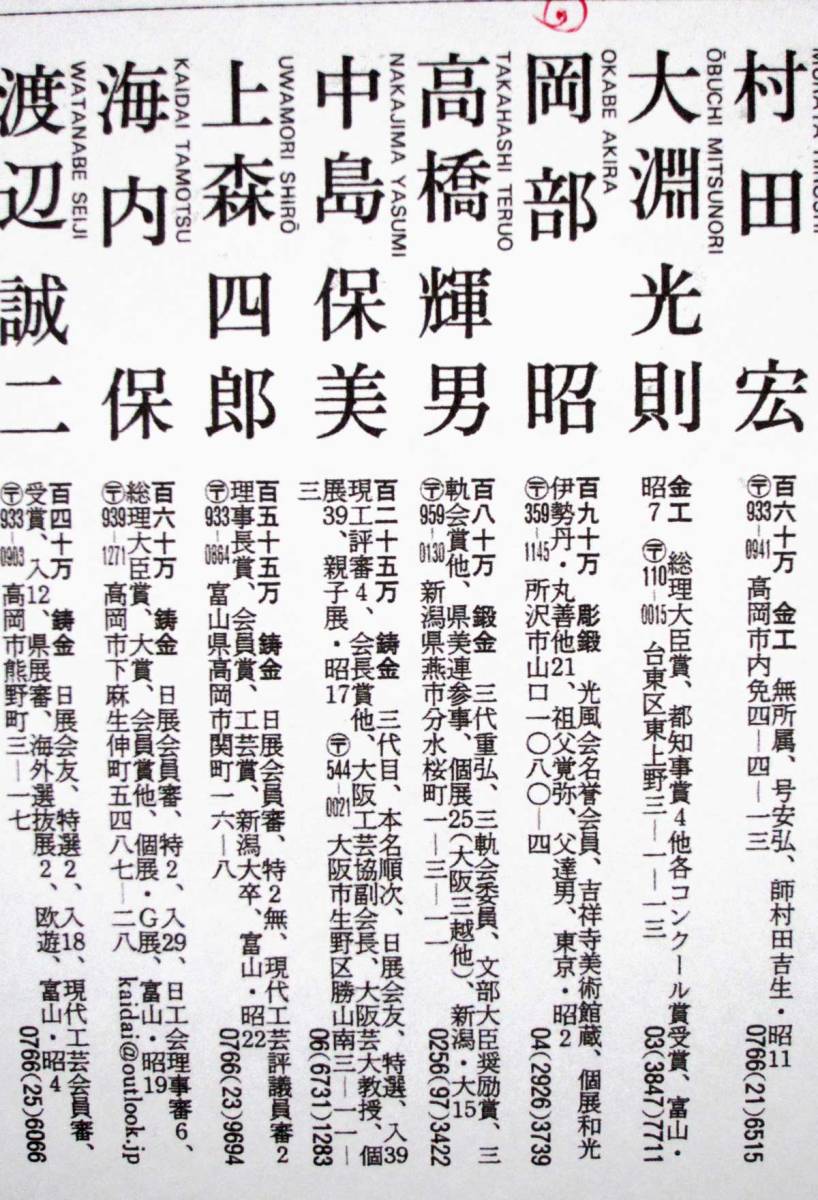 村田 宏
百六十万 金工 無所属、号安弘、師村田吉生・昭11
〒933-0941 高岡市内免四―四―一三 0766(21)6515
ŌBUCHI MITSUNORI
大淵光則
金工 総理大臣賞、都知事賞4他各コンクール賞受賞、富山・
昭7 〒110-0015 台東区東上野三―一―一三 03(3847)7711
OKABE AKIRA
岡部 昭
百九十万 彫鍛 光風会名誉会員、吉祥寺美術館蔵、個展和光
伊勢丹・丸善他21、祖父覚弥、父達男、東京・昭2
〒359-1145 所沢市山口一〇八〇―四 04(2926)3739
TAKAHASHI TERUO
高橋輝男
百八十万 鍛金 三代重弘、三軌会委員、文部大臣奨励賞、三
軌会賞他、県美連参事、個展25(大阪三越他)、新潟・大15
〒959-0130 新潟県燕市分水桜町一―三―一一 0256(97)3422
NAKAJIMA YASUMI
中島保美
百二十五万 鋳金 三代目、本名順次、日展会友、特選、入39
現工評審4、会長賞他、大阪工芸協副会長、大阪芸大教授、個
展39、親子展・昭17 〒544-0021 大阪市生野区勝山南三―一一―
三 06(6731)1283
UWAMORI SHIRŌ
上森四郎
百五十五万 鋳金 日展会員審、特2無、現代工芸評議員審2
理事長賞、会員賞、工芸賞、新潟大卒、富山・昭22
〒933-0864 富山県高岡市関町一六―八 0766(23)9694
KAIDAI TAMOTSU
海内 保
百六十万 鋳金 日展会員審、特2、入29、日工会理事審6、
総理大臣賞、大賞、会員賞他、個展・G展、富山・昭19
〒939-1271 高岡市下麻生伸町五四八七―二八 kaidai@outlook.jp
WATANABE SEIJI
渡辺誠二
百四十万 鋳金 日展会友、特選2、入18、現代工芸会員審、
受賞、入12、県展審、海外選抜展2、欧遊、富山・昭4
〒933-0903 高岡市熊野町三―一七 0766(25)6066